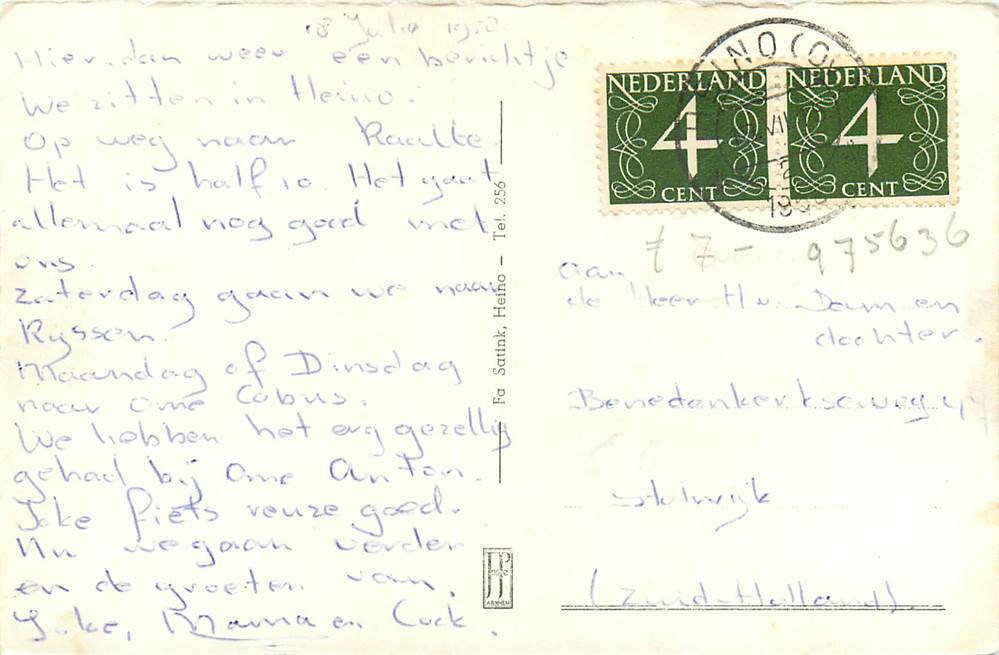 18 Julie 1958
Hier dan weer een berichtje
We zitten in Heino.
Op weg naar Raalte.
Het is half 10. Het gaat
allemaal nog goed met
ons.
Zaterdag gaan we naar
Ryssen.
Maandag of Dinsdag
naar Ome Cobus.
We hebben het erg gezellig
gehad bij Ome Anton.
Joke fiets reuze goed.
Nu we gaan verder
en de groeten van,
Joke, Mama en Cock.
Fa Satink, Heino - Tel. 256
JPH
ARNHEM
NEDERLAND
4
CENT
NEDERLAND
4
CENT
HEINO (OV
VII
195
f 7 - 975636
Aan
de Heer H. v. Dam en
dochter.
Benedenkerkseweg 44
Stolwijk
(Zuid-Holland).